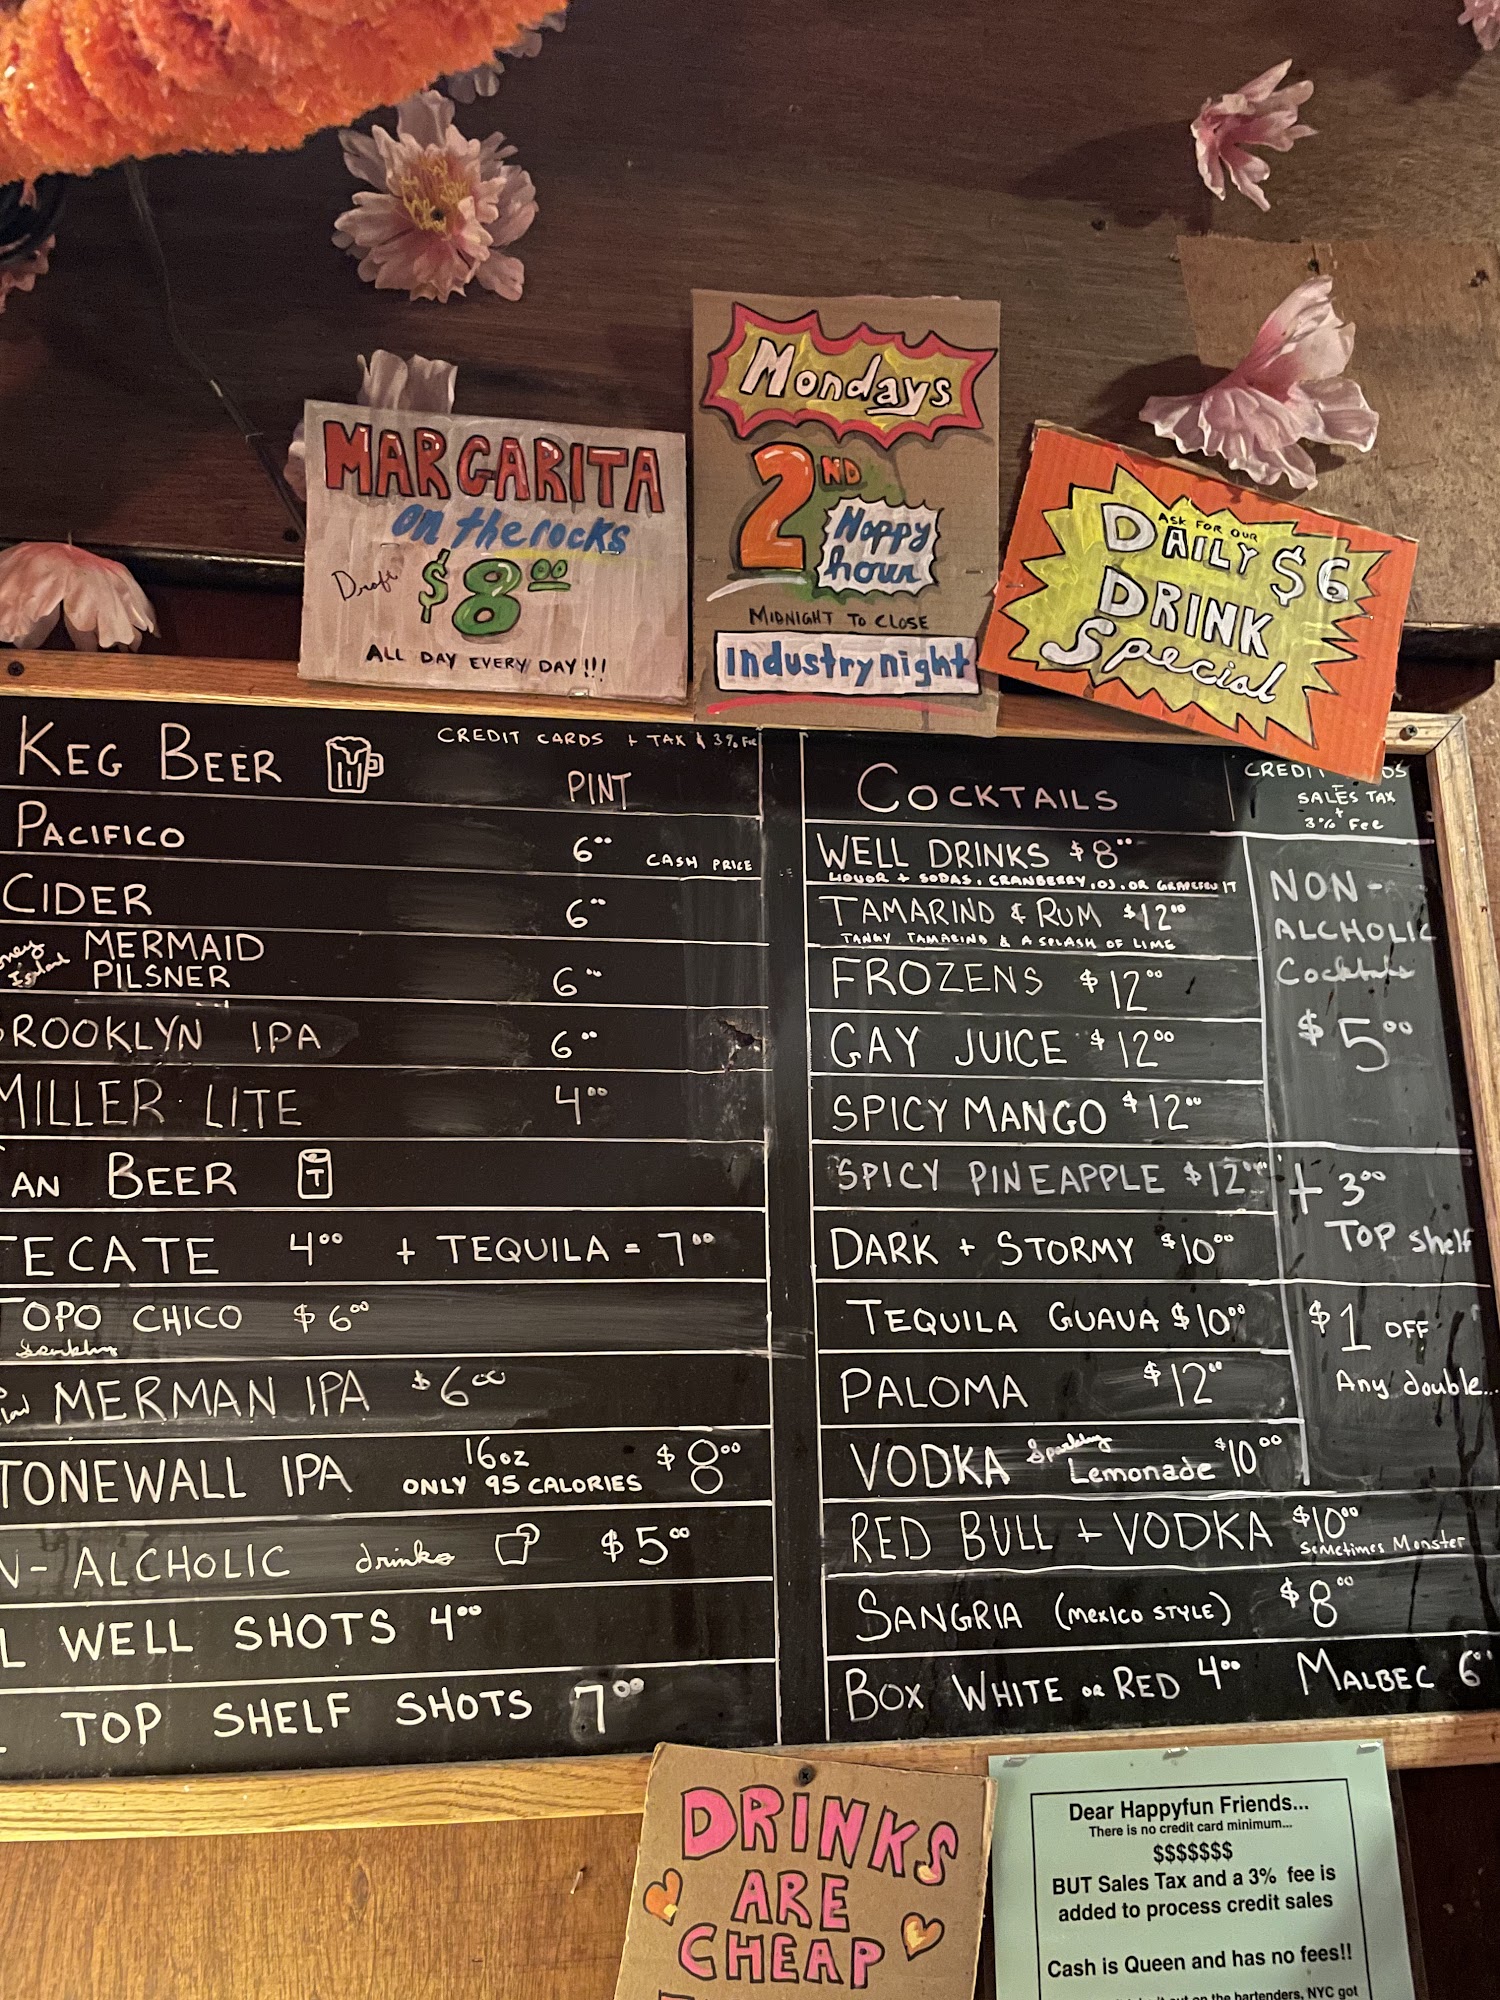 MARGARITA
on the rocks
Draft $8.00
ALL DAY EVERY DAY!!!
Mondays
2ND
Happy
hour
MIDNIGHT TO CLOSE
Industry night
ASK FOR OUR
DAILY $6
DRINK
Special
KEG BEER
CREDIT CARDS + TAX & 3% Fee
PINT
PACIFICO 6.00 CASH PRICE
CIDER 6.00
MERMAID
PILSNER 6.00
ROOKLYN IPA 6.00
MILLER LITE 4.00
AN BEER
TECATE 4.00 + TEQUILA = 7.00
TOPO CHICO $6.00
MERMAN IPA $6.00
TONEWALL IPA 16oz $8.00
ONLY 95 CALORIES
N-ALCHOLIC drinks $5.00
L WELL SHOTS 4.00
TOP SHELF SHOTS 7.00
COCKTAILS
WELL DRINKS $8.00
LIQUOR + SODAS, CRANBERRY, OJ, OR GRAPEFRUIT
TAMARIND & RUM $12.00
TANGY TAMARIND & A SPLASH OF LIME
FROZENS $12.00
GAY JUICE $12.00
SPICY MANGO $12.00
SPICY PINEAPPLE $12.00
DARK + STORMY $10.00
TEQUILA GUAVA $10.00
PALOMA $12.00
VODKA Sparkling Lemonade $10.00
RED BULL + VODKA $10.00
Sometimes Monster
SANGRIA (MEXICO STYLE) $8.00
BOX WHITE OR RED 4.00 MALBEC 6.00
SALES TAX
+
3% Fee
NON-
ALCHOLIC
Cocktails
$5.00
+ 3.00
TOP Shelf
$1 OFF
Any double...
DRINKS
ARE
CHEAP
Dear Happyfun Friends...
There is no credit card minimum...
$$$$$$$
BUT Sales Tax and a 3% fee is
added to process credit sales
Cash is Queen and has no fees!!
on the bartenders, NYC got